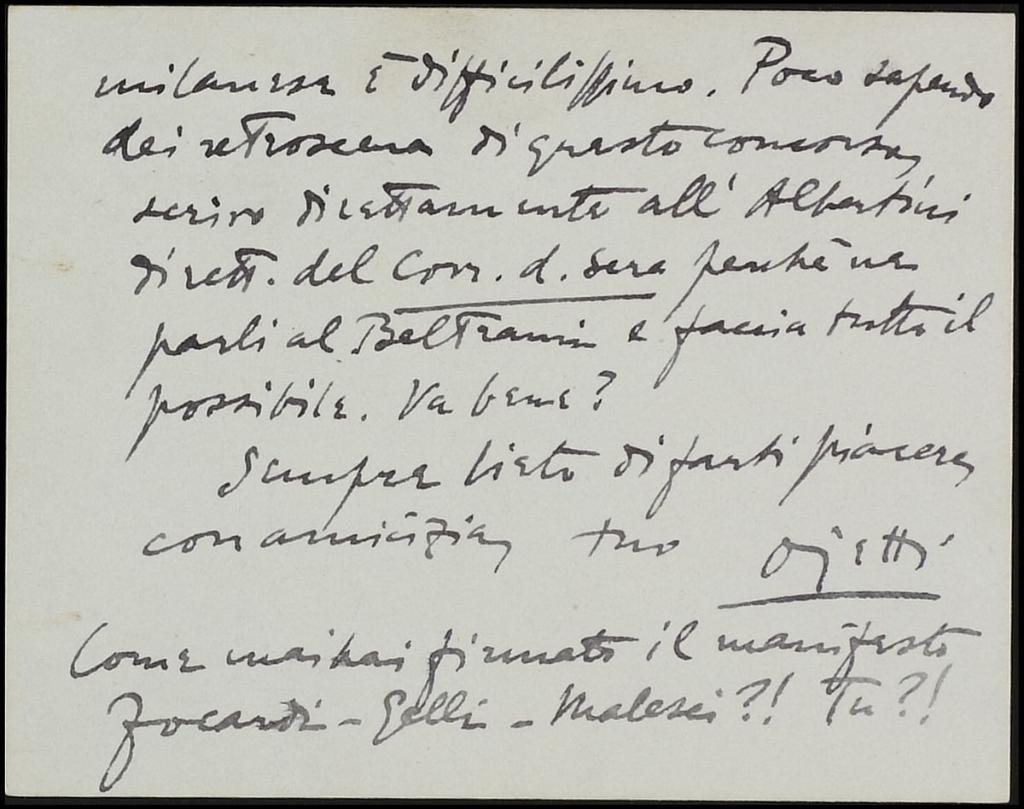 milanese è difficilissimo. Poco sapendo
dei retroscena di questo concorso,
scrivo direttamente all'Albertini
dirett. del Corr. d. Sera perchè ne
parli al Beltrami e faccia tutto il
possibile. Va bene?
Sempre lieto di farti piacere,
con amicizia, tuo Ojetti
Come mai hai firmato il manifesto
Focardi - Gelli - Malesci?! Tu?!